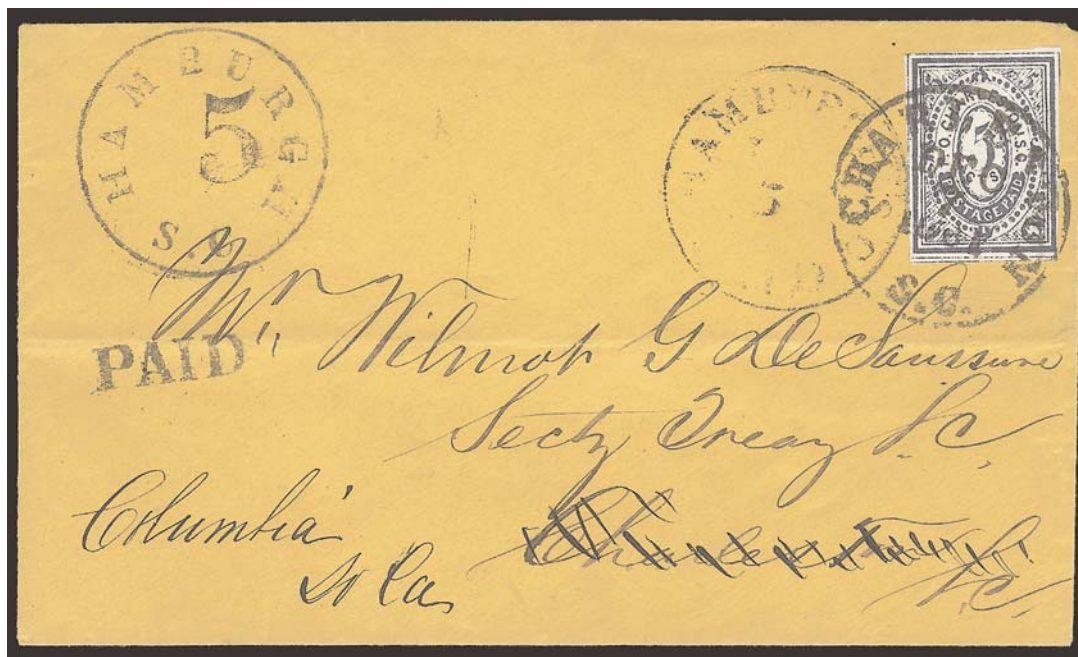 HAMBURGH
5
S.C
HAMBUR
5
CHARLESTON
S.C.
5
P.O. CHARLESTON, S.C.
5
POSTAGE PAID
PAID
Mr. Wilmot G DeSaussure
Secty Treasy S.C,
Columbia
So Ca,
S.C.